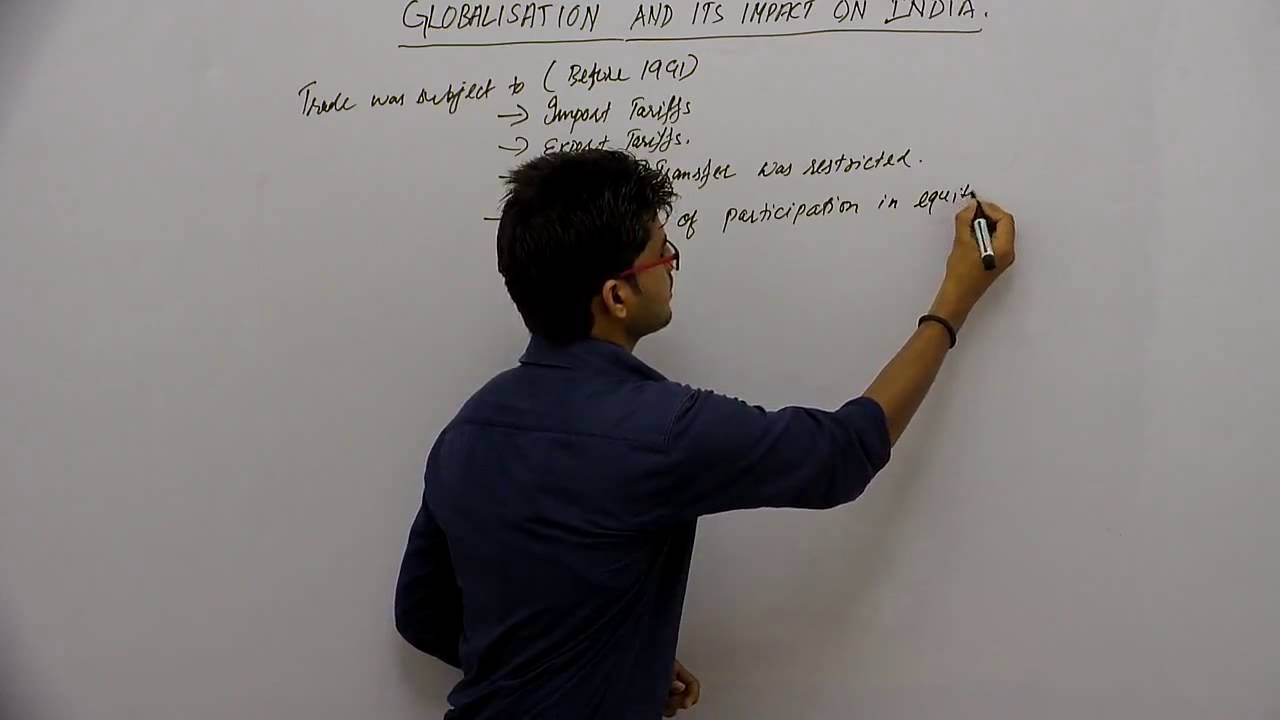 GLOBALISATION AND ITS IMPACT ON INDIA.
Trade was subject to (Before 1991)
→ Import Tariffs
→ Export Tariffs.
Transfer was restricted.
of participation in equit